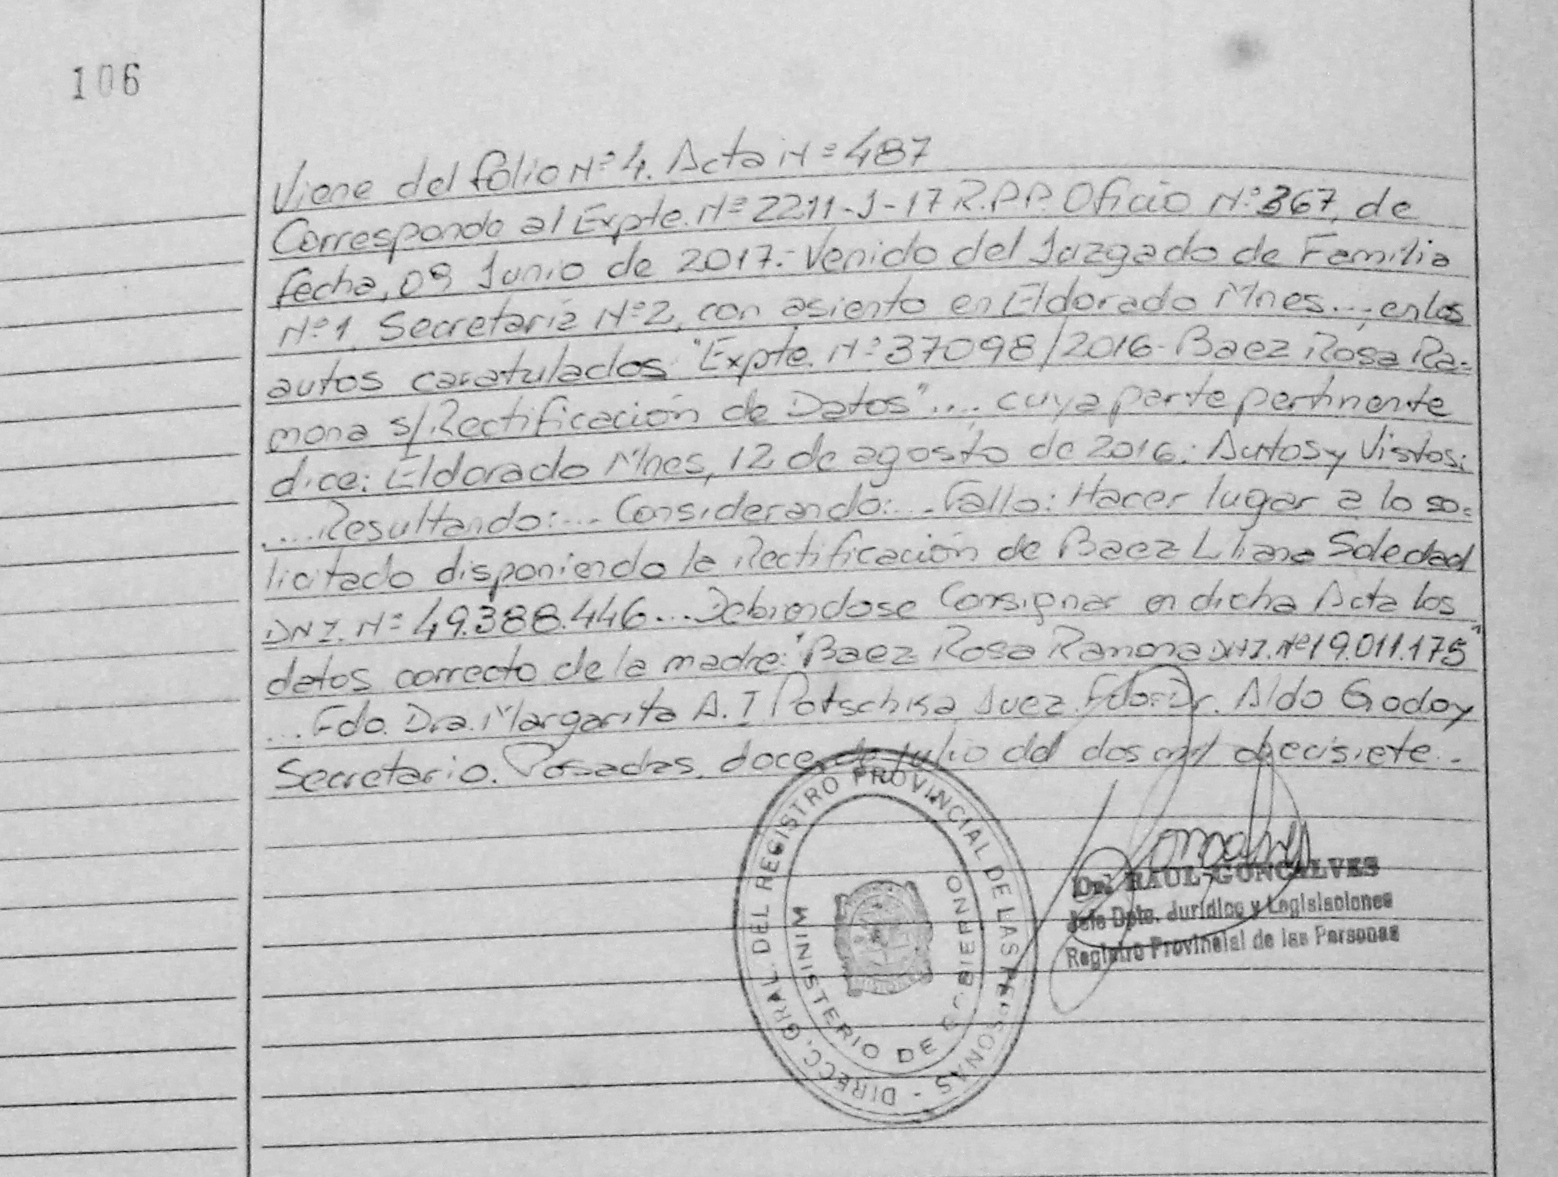 106
Viene del folio Nº 4. Acta Nº 487
Corresponde al Expte. Nº 2211-J-17 R.P.P. Oficio Nº 367, de
fecha, 09 Junio de 2017.- Venido del Juzgado de Familia
Nº 1, Secretaria Nº 2, con asiento en Eldorado Mnes...; en los
autos caratulados "Expte. Nº 37098/2016- Baez Rosa Ra-
mona s/Rectificación de Datos".... cuya parte pertinente
dice: Eldorado Mnes, 12 de agosto de 2016. Autos y Vistos:
....Resultando:... Considerando:... Fallo: Hacer lugar a lo so-
licitado disponiendo la Rectificación de Baez Liliana Soledad
DNI. Nº 49.388.446... Debiendose Consignar en dicha Acta los
datos correcto de la madre: "Baez Rosa Ramona DNI. Nº 19.011.175"
... Fdo. Dra. Margarita A. I Potschka Juez. Fdo. Dr. Aldo Godoy
Secretario. Posadas, doce de Julio del dos mil diecisiete..
DIRECC. GRAL. DEL REGISTRO PROVINCIAL DE LAS PERSONAS -
MINISTERIO DE GOBIERNO
Dr. RAUL GONCALVES
Jefe Dpto. Jurídico y Legislaciones
Registro Provincial de las Personas